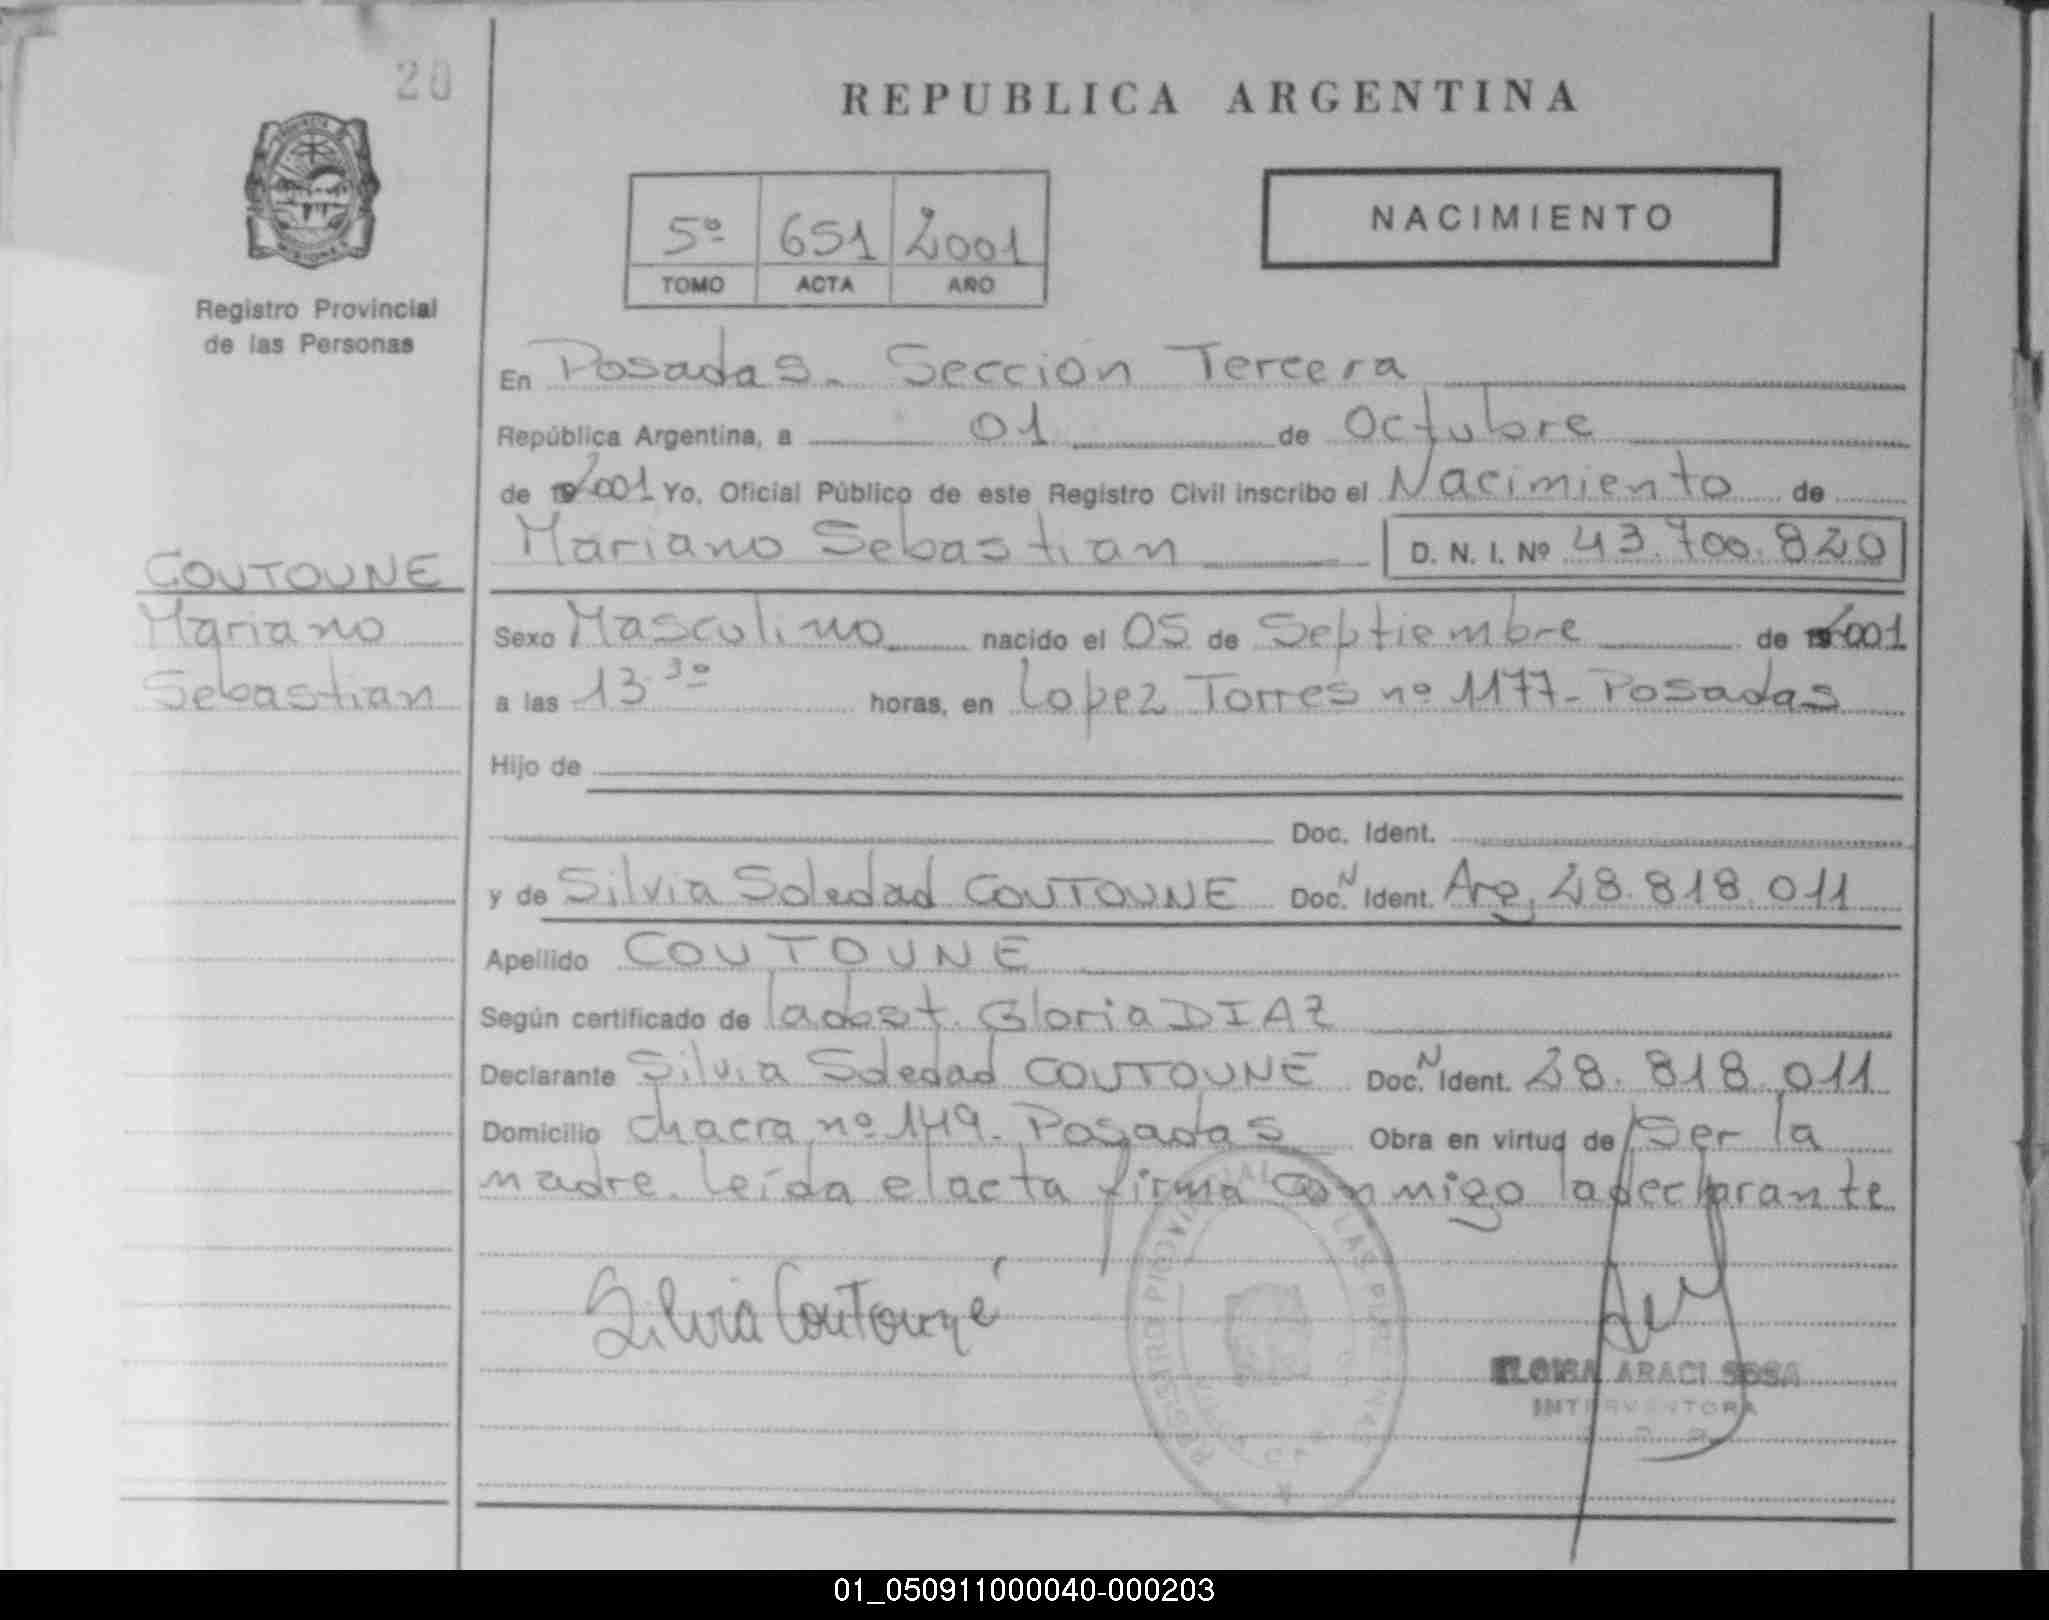 20
REPUBLICA ARGENTINA
NACIMIENTO
5º 651 2001
TOMO ACTA AÑO
Registro Provincial
de las Personas
En Posadas. Sección Tercera
República Argentina, a 01 de Octubre
de 2001 Yo, Oficial Público de este Registro Civil inscribo el Nacimiento de
Mariano Sebastian D. N. I. Nº 43.700.820
COUTOUNE
Mariano
Sebastian
Sexo Masculino nacido el 05 de Septiembre de 2001
a las 13.30 horas, en Lopez Torres nº 1177 - Posadas
Hijo de
Doc. Ident.
y de Silvia Soledad COUTOUNE Doc. N Ident. Arg. 28.818.011
Apellido COUTOUNE
Según certificado de la obst. Gloria DIAZ
Declarante Silvia Soledad COUTOUNE Doc. N Ident. 28.818.011
Domicilio chacra nº 149 - Posadas Obra en virtud de Ser la
madre. Leída el acta firma conmigo la declarante
Silvia Coutouné
REGISTRO PROVINCIAL LAS PERSONAS
ELOISA ARACI SOSA
INTERVENTORA
01_050911000040-000203